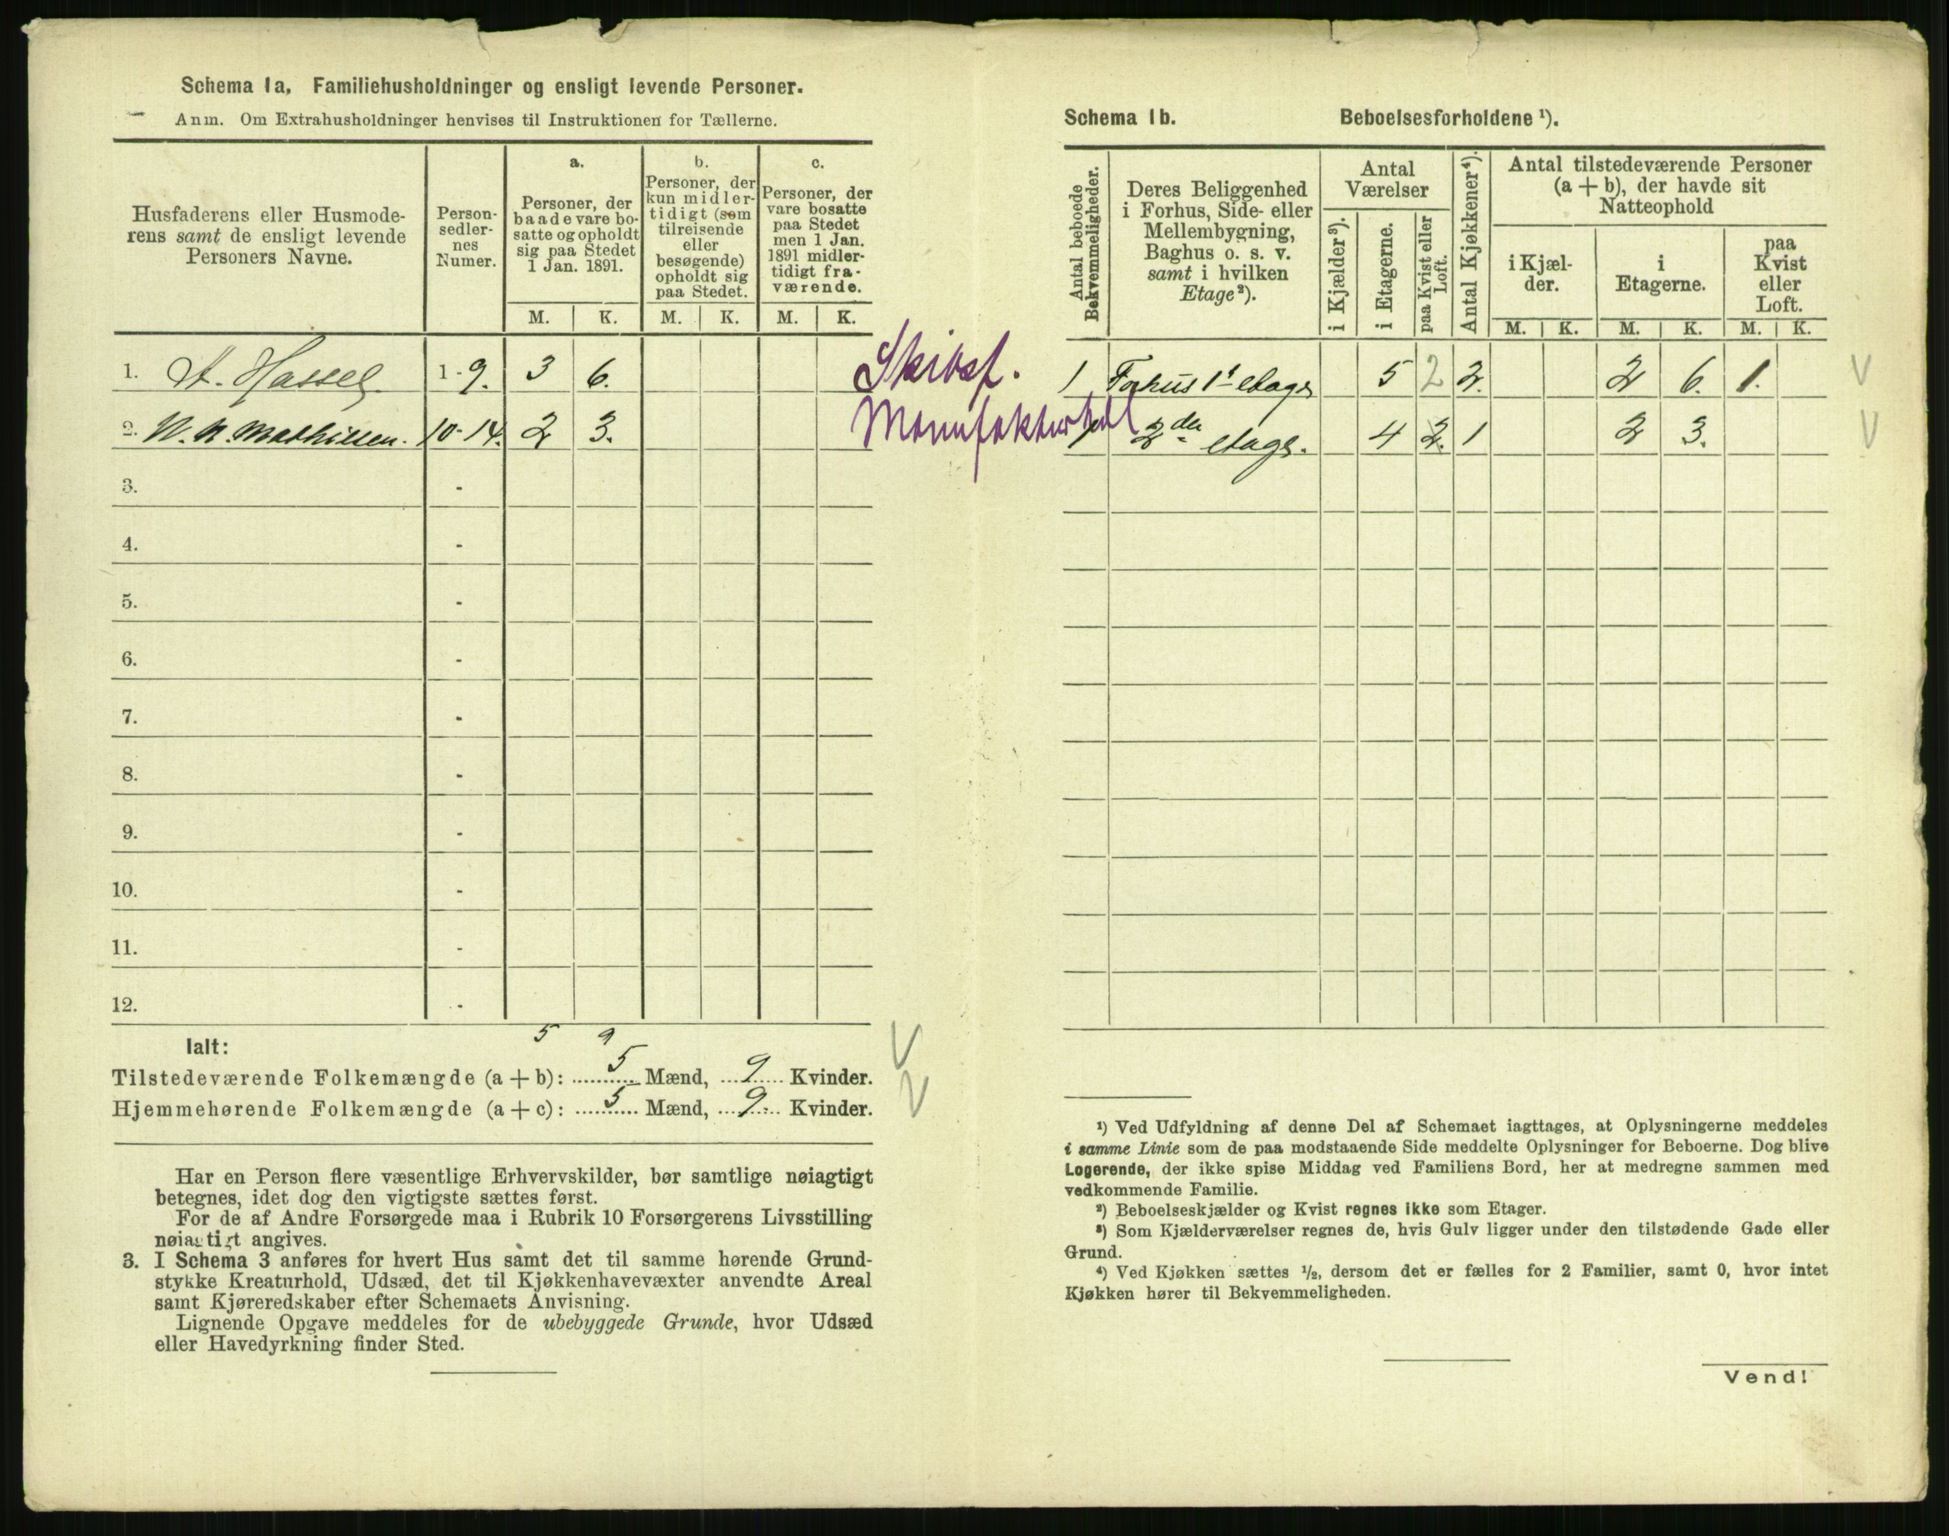 Schema 1a. Familiehusholdninger og ensligt levende Personer.
Anm. Om Extrahusholdninger henvises til Instruktionen for Tællerne.
Husfaderens eller Husmode-
rens samt de ensligt levende
Personers Navne.
Person-
sedler-
nes
Numer.
a.
Personer, der
baade vare bo-
satte og opholdt
sig paa Stedet
1 Jan. 1891.
b.
Personer, der
kun midler-
tidigt (som
tilreisende
eller
besøgende)
opholdt sig
paa Stedet.
c.
Personer, der
vare bosatte
paa Stedet
men 1 Jan.
1891 midler-
tidigt fra-
værende.
M. K. M. K. M. K.
1. A. Hassel. 1-9. 3 6. Skibsf.
2. N. N. Mathissen. 10-14. 2 3.
3. -
4. -
5. -
6. -
7. -
8. -
9. -
10. -
11. -
12. -
5 9
Ialt:
Tilstedeværende Folkemængde (a + b): 5 Mænd, 9 Kvinder.
Hjemmehørende Folkemængde (a + c): 5 Mænd, 9. Kvinder.
Har en Person flere væsentlige Erhvervskilder, bør samtlige nøiagtigt
betegnes, idet dog den vigtigste sættes først.
For de af Andre Forsørgede maa i Rubrik 10 Forsørgerens Livsstilling
nøiagtigt angives.
3. I Schema 3 anføres for hvert Hus samt det til samme hørende Grund-
stykke Kreaturhold, Udsæd, det til Kjøkkenhavevæxter anvendte Areal
samt Kjøreredskaber efter Schemaets Anvisning.
Lignende Opgave meddeles for de ubebyggede Grunde, hvor Udsæd
eller Havedyrkning finder Sted.
Schema 1b. Beboelsesforholdene ¹).
Antal beboede
Bekvemmeligheder.
Deres Beliggenhed
i Forhus, Side- eller
Mellembygning,
Baghus o. s. v.
samt i hvilken
Etage²).
Antal
Værelser
i Kjælder³).
i Etagerne.
paa Kvist eller
Loft.
Antal Kjøkkener⁴).
Antal tilstedeværende Personer
(a + b), der havde sit
Natteophold
i Kjæl-
der.
i
Etagerne.
paa
Kvist
eller
Loft.
M. K. M. K. M. K.
1 Forhus 1ˢᵗ etage 5 2 2. 2 6. 1. V
1 2den etage. 4 2. 1 2 3. V
¹) Ved Udfyldning af denne Del af Schemaet iagttages, at Oplysningerne meddeles
i samme Linie som de paa modstaaende Side meddelte Oplysninger for Beboerne. Dog blive
Logerende, der ikke spise Middag ved Familiens Bord, her at medregne sammen med
vedkommende Familie.
²) Beboelseskjælder og Kvist regnes ikke som Etager.
³) Som Kjælderværelser regnes de, hvis Gulv ligger under den tilstødende Gade eller
Grund.
⁴) Ved Kjøkken sættes ½, dersom det er fælles for 2 Familier, samt 0, hvor intet
Kjøkken hører til Bekvemmeligheden.
Vend!